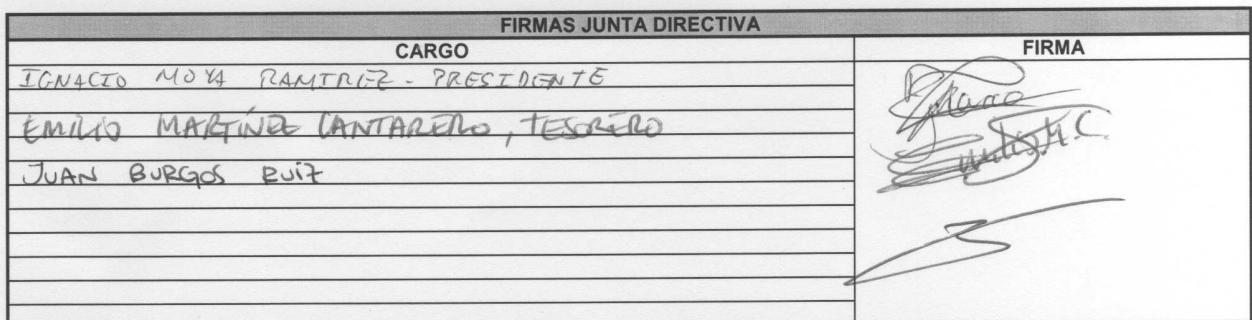 FIRMAS JUNTA DIRECTIVA
CARGO FIRMA
IGNACIO MOYA RAMIREZ - PRESIDENTE
EMILIO MARTÍNEZ CANTARERO, TESORERO
JUAN BURGOS RUIZ